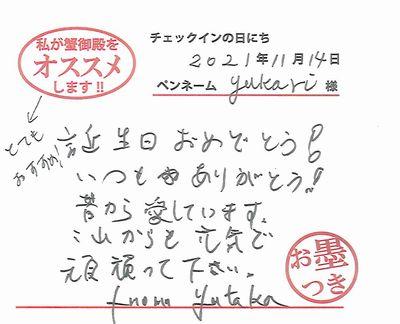 私が蟹御殿を
オススメ
します!!
チェックインの日にち
2021年11月14日
ペンネーム yukari 様
とても
おすすめ!
誕生日おめでとう!
いつもありがとう!!
昔から愛しています。
これからも元気で
頑張って下さい。
from yutaka
お墨
つき